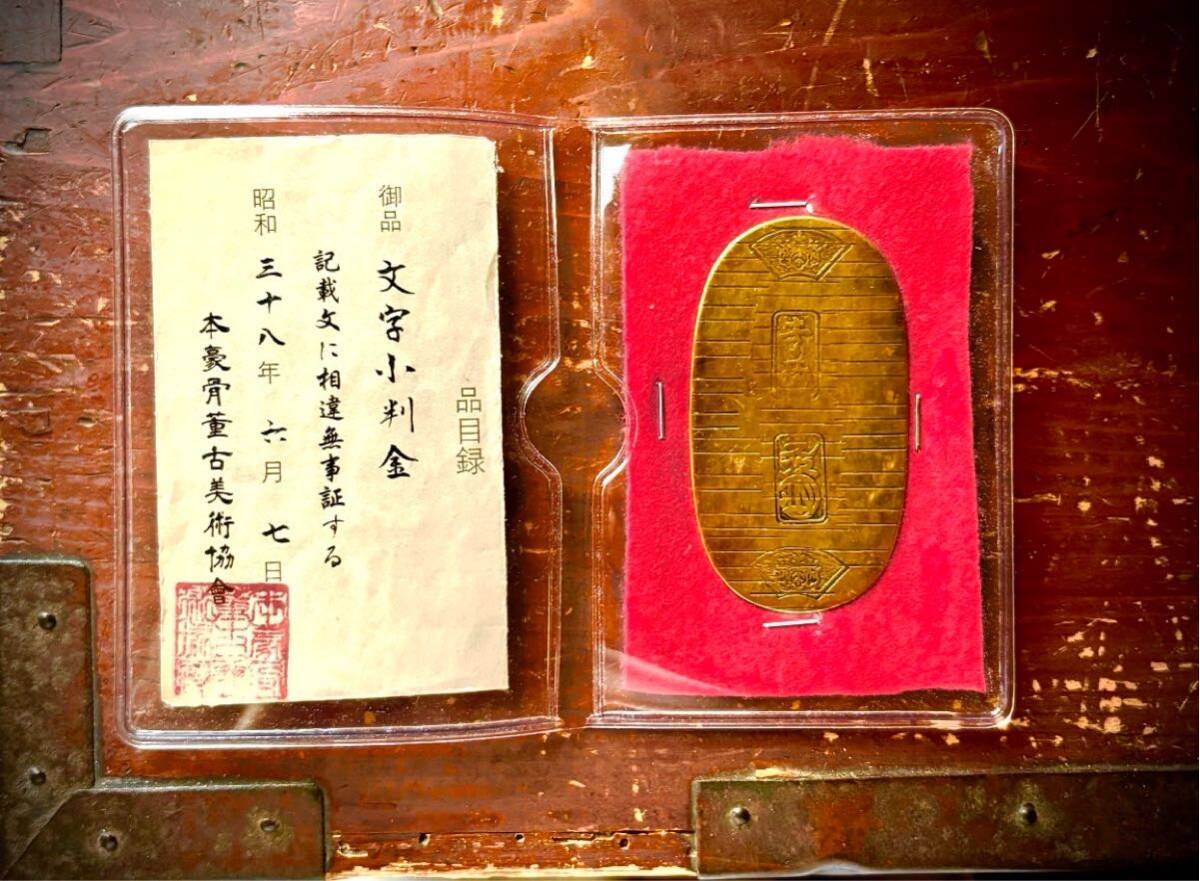 品目録
御品 文字小判金
記載文に相違無事証する
昭和 三十八年 六月 七日
本豪骨董古美術協會